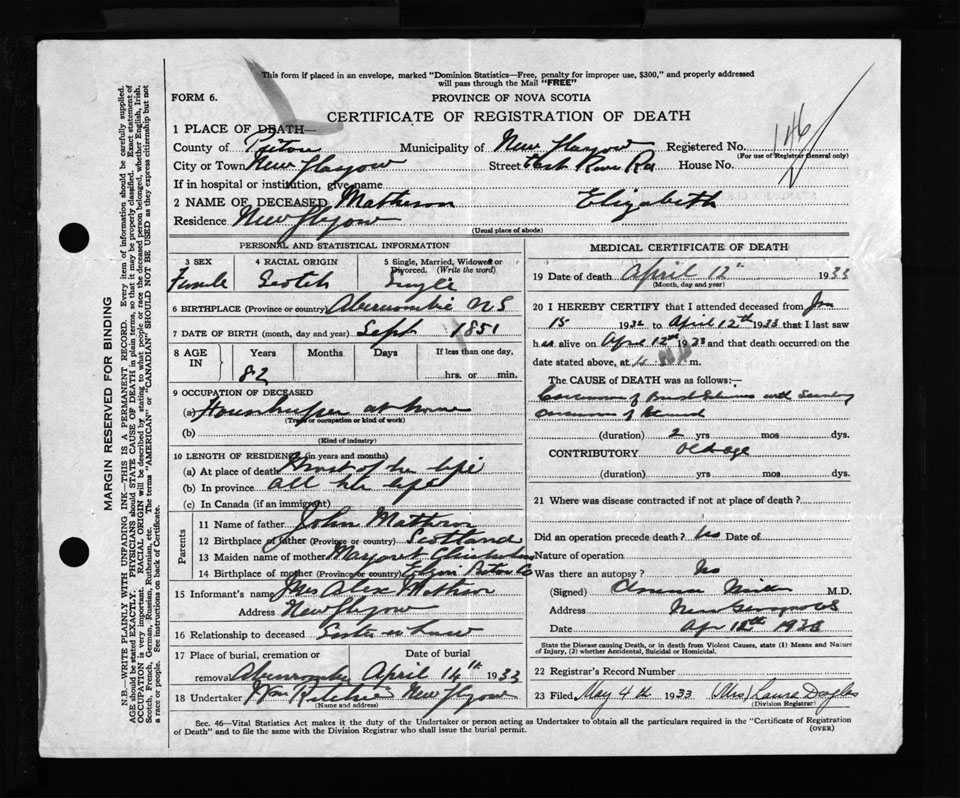 This form if placed in an envelope, marked "Dominion Statistics—Free, penalty for improper use, $300," and properly addressed
will pass through the Mail "FREE"
FORM 6. PROVINCE OF NOVA SCOTIA
CERTIFICATE OF REGISTRATION OF DEATH
146
1 PLACE OF DEATH—
County of Pictou Municipality of New Glasgow Registered No.
(For use of Registrar General only)
City or Town New Glasgow Street East River Rd House No.
If in hospital or institution, give name
2 NAME OF DECEASED Matheson Elizabeth
Residence New Glasgow
(Usual place of abode)
PERSONAL AND STATISTICAL INFORMATION
3 SEX 4 RACIAL ORIGIN 5 Single, Married, Widowed or Divorced. (Write the word)
Female Scotch Single
6 BIRTHPLACE (Province or country) Abercrombie N S
7 DATE OF BIRTH (month, day and year) Sept 1851
8 AGE IN Years Months Days If less than one day,
82 hrs. or min.
9 OCCUPATION OF DECEASED
(a) Housekeeper at home
(Trade or occupation or kind of work)
(b)
(Kind of industry)
10 LENGTH OF RESIDENCE (in years and months)
(a) At place of death most of her life
(b) In province all her life
(c) In Canada (if an immigrant)
Parents
11 Name of father John Matheson
12 Birthplace of father (Province or country) Scotland
13 Maiden name of mother Margaret Chisholm
14 Birthplace of mother (Province or country) Elgin Pictou Co
15 Informant's name Mrs Alex Matheson
Address New Glasgow
16 Relationship to deceased Sister in Law
17 Place of burial, cremation or removal Date of burial
Abercrombie April 14th 1933
18 Undertaker Wm Ritchie New Glasgow
(Name and address)
MEDICAL CERTIFICATE OF DEATH
19 Date of death April 12" 1933
(Month, day and year)
20 I HEREBY CERTIFY that I attended deceased from Jan
15 1932 to April 12th 1933 that I last saw
her alive on April 12th 1933 and that death occurred on the
date stated above, at m.
The CAUSE of DEATH was as follows:—
Carcinoma of with Secondary
Carcinoma of
(duration) 2 yrs mos dys.
CONTRIBUTORY Old age
(duration) yrs mos dys.
21 Where was disease contracted if not at place of death?
Did an operation precede death? No Date of
Nature of operation
Was there an autopsy? No
(Signed) Clarence Miller M.D.
Address New Glasgow N.S.
Date Apr 15th 1933
State the Disease causing Death, or in death from Violent Causes, state (1) Means and Nature
of Injury, (2) whether Accidental, Suicidal or Homicidal.
22 Registrar's Record Number
23 Filed May 4th 1933 (Mrs) Laura Douglas
(Division Registrar)
Sec. 46—Vital Statistics Act makes it the duty of the Undertaker or person acting as Undertaker to obtain all the particulars required in the "Certificate of Registration
of Death" and to file the same with the Division Registrar who shall issue the burial permit. (OVER)
MARGIN RESERVED FOR BINDING
N.B.—WRITE PLAINLY WITH UNFADING INK—THIS IS A PERMANENT RECORD. Every item of information should be carefully supplied.
AGE should be stated EXACTLY. PHYSICIANS should STATE CAUSE OF DEATH in plain terms, so that it may be properly classified. Exact statement of
OCCUPATION is very important. RACIAL ORIGIN will be described by stating to what people or race the deceased person belonged, whether English, Irish,
Scotch, French, German, Russian, Ruthenian, etc. The terms "AMERICAN" or "CANADIAN" SHOULD NOT BE USED as they express citizenship but not
a race or people. See instructions on back of Certificate.